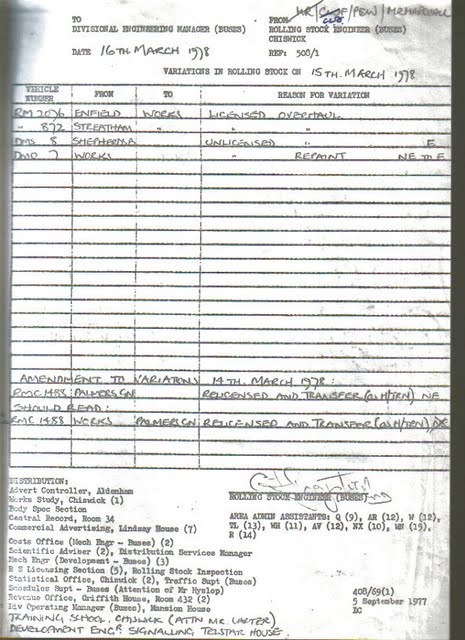 MR / / PSW / MR MARSHALL
TO FROM
DIVISIONAL ENGINEERING MANAGER (BUSES) ROLLING STOCK ENGINEER (BUSES)
CHISWICK
DATE 16TH MARCH 1978 REF: 508/1
VARIATIONS IN ROLLING STOCK ON 15TH. MARCH 1978
VEHICLE NUMBER FROM TO REASON FOR VARIATION
RM 2076 ENFIELD WORKS LICENSED OVERHAUL
" 872 STREATHAM " " "
DMS 8 UNLICENSED " E
DMO 7 WORKS " REPAINT NE TO E
AMENDMENT TO VARIATIONS 14TH. MARCH 1978:
RMC 1488 PALMERS GN RELICENSED AND TRANSFER (OU H/TRN) NE
SHOULD READ:
RMC 1488 WORKS PALMERS GN RELICENSED AND TRANSFER (OU H/TRN)
DISTRIBUTION:
Advert Controller, Aldenham
Works Study, Chiswick (1)
Body Spec Section
Central Record, Room 34
Commercial Advertising, Lindsay House (7)
Costs Office (Mech Engr - Buses) (2)
Scientific Adviser (2), Distribution Services Manager
Mech Engr (Development - Buses) (3)
R S Licensing Section (5), Rolling Stock Inspection
Statistical Office, Chiswick (2), Traffic Supt (Buses)
Schedules Supt - Buses (Attention of Mr Hyslop)
Revenue Office, Griffith House, Room 432 (2)
Div Operating Manager (Buses), Mansion House
TRAINING SCHOOL, CHISWICK (ATTN MR. CARTER)
DEVELOPMENT ENGR. SIGNALLING TELSTAR HOUSE.
ROLLING STOCK ENGINEER (BUSES)
AREA ADMIN ASSISTANTS: Q (9), AR (12), W (12),
TL (13), WH (11), AV (12), NX (10), WN (15),
R (14)
408/69(1)
5 September 1977
EC